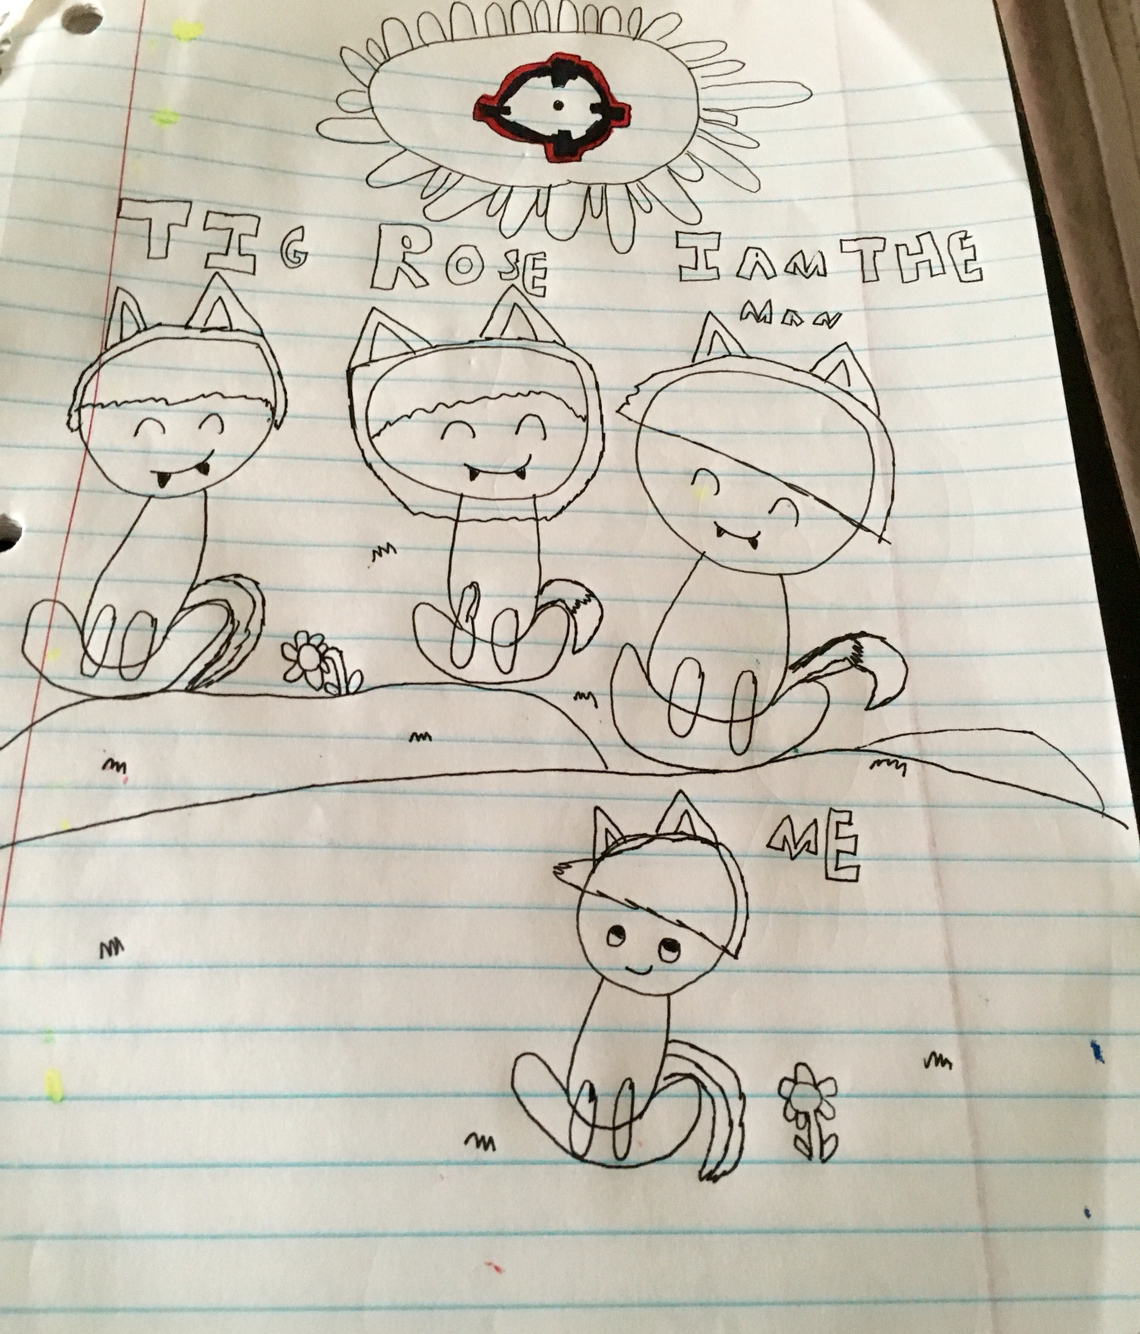 TIG ROSE I AM THE
MAN
ME